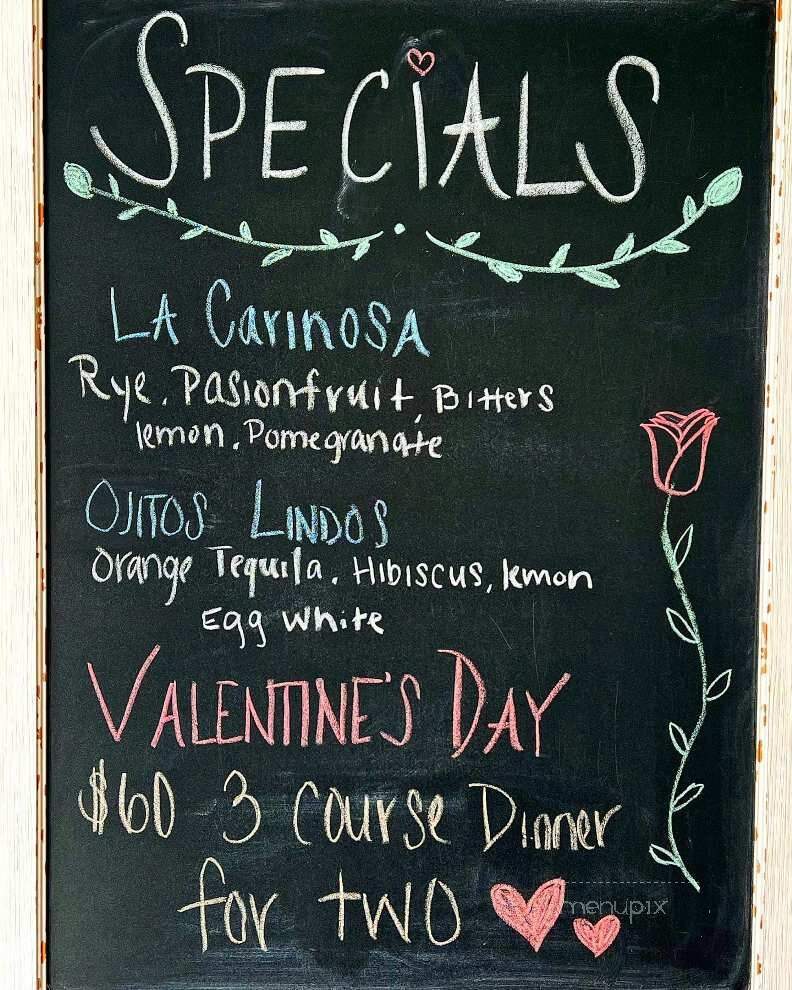 SPECiALS
LA CarinoSA
Rye. Pasionfruit, Bitters
lemon. Pomegranate
OJITOS LINDOS
Orange Tequila. Hibiscus, lemon
Egg White
VALENTINE'S DAY
$60 3 Course Dinner
for two
menupix